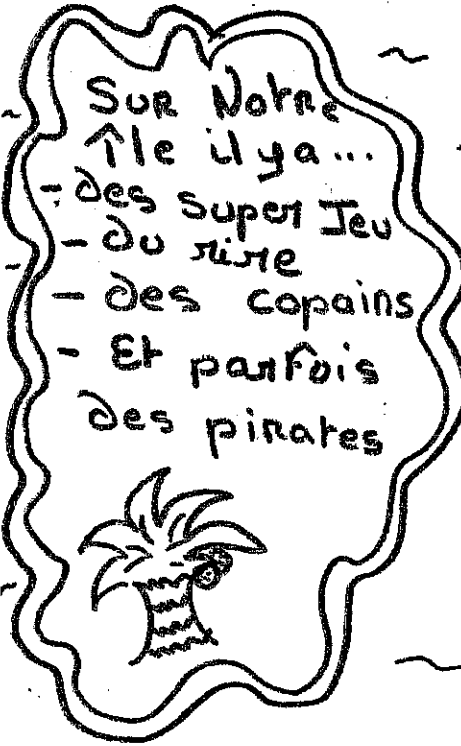 Sur Notre
Île il y a...
- des super Jeu
- du rire
- des copains
- Et parfois
des pirates